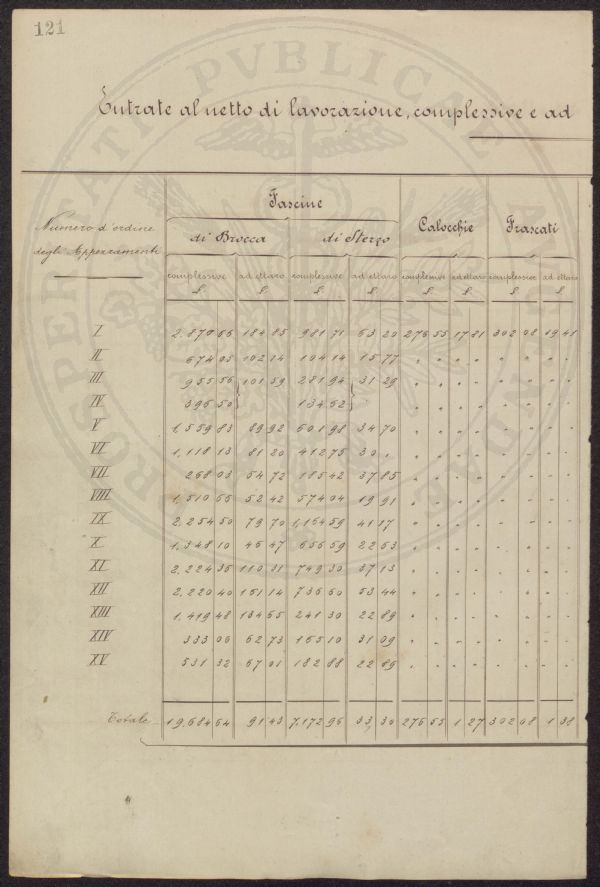 121
PROSPERITATI PVBLICAE AVGENDAE
Entrate al netto di lavorazione, complessive e ad
Fascine
Numero d'ordine degli Appezzamenti di Brocca di Sterzo Calocchie Frascati
complessive ad ettaro complessive ad ettaro complessive ad ettaro complessive ad ettaro
£. £. £. £. £. £. £. £.
I 2.870 66 184 85 981 71 63 20 276 55 17 81 302 08 19 41
II 674 05 102 14 104 14 15 77 " " " " " " " "
III 955 56 101 39 281 94 31 29 " " " " " " " "
IV 396 50 134 62 " " " " " " " "
V 1,559 83 89 92 601 98 34 70 " " " " " " " "
VI 1,118 13 81 20 412 75 30 " " " " " " " " "
VII 268 03 54 72 185 42 37 85 " " " " " " " "
VIII 1,510 66 52 42 574 04 19 91 " " " " " " " "
IX 2.254 50 79 70 1,164 59 41 17 " " " " " " " "
X 1.348 10 46 47 656 59 22 63 " " " " " " " "
XI 2.224 36 110 31 749 30 37 13 " " " " " " " "
XII 2.220 40 161 14 736 60 53 44 " " " " " " " "
XIII 1.419 48 134 65 241 30 22 89 " " " " " " " "
XIV 333 06 62 73 165 10 31 09 " " " " " " " "
XV 531 32 67 01 182 88 22 86 " " " " " " " "
Totale 19.684 64 91 43 7,172 96 33 30 276 55 1 27 302 08 1 38